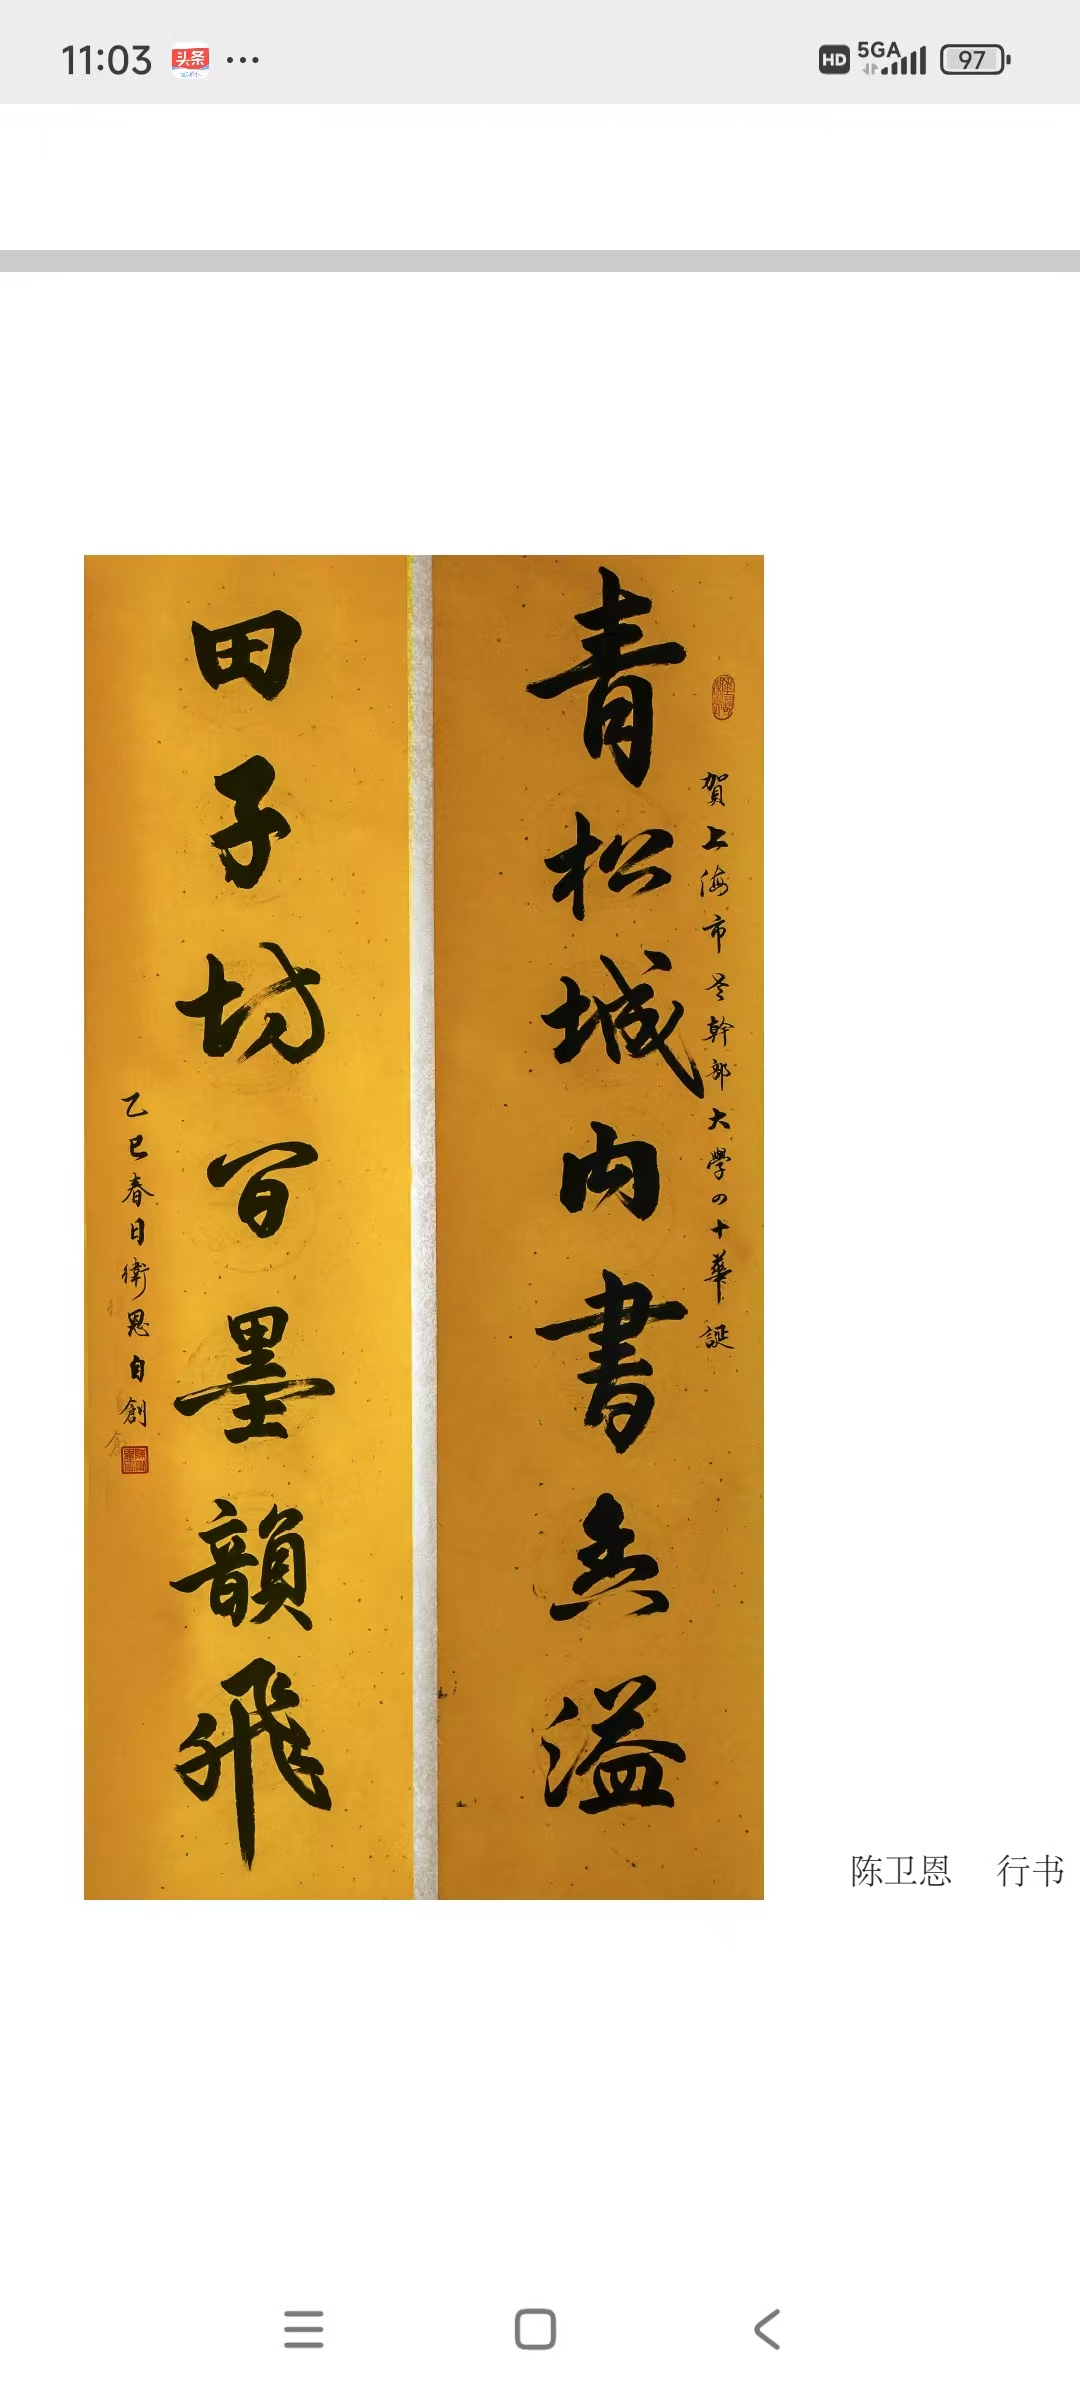 11:03 头条 ...
HD 5GA 97
青松城内書香溢
賀上海市老幹部大學四十華誕
田子坊間墨韻飛
乙巳春日衛恩自創
陈卫恩 行书